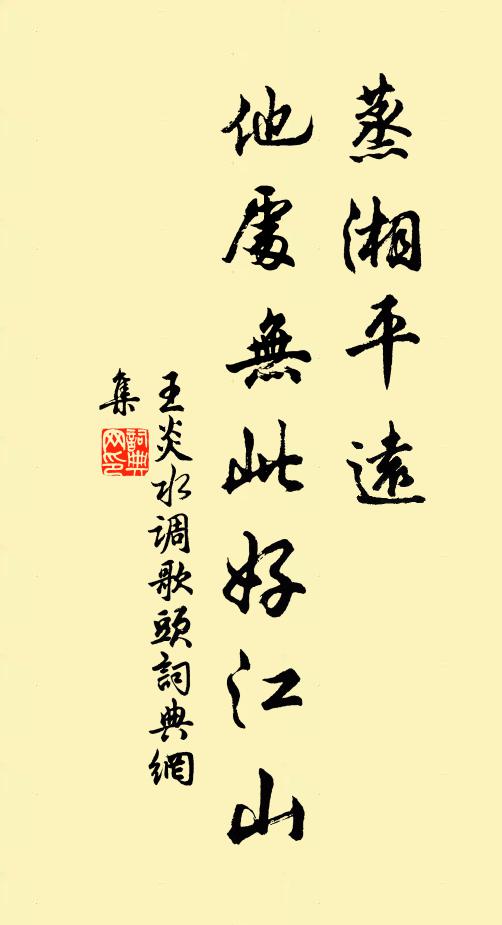 蒸湘平遠
他處無此好江山
王炎水调歌頭詞典網
集
詞典
网印